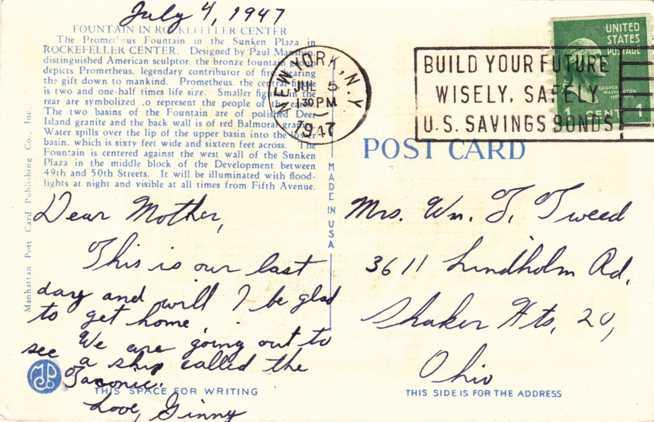 July 4, 1947
FOUNTAIN IN ROCKEFELLER CENTER
The Prometheus Fountain in the Sunken Plaza in
ROCKEFELLER CENTER. Designed by Paul
distinguished American sculptor, the bronze fountain
depicts Prometheus, legendary contributor of fire,
the gift down to mankind. Prometheus, the
is two and one-half times life size. Smaller
rear are symbolized to represent the people of the
The two basins of the Fountain are of polished Deer
Island granite and the back wall is of red Balmoral
Water spills over the lip of the upper basin into the
basin, which is sixty feet wide and sixteen feet across. The
Fountain is centered against the west wall of the Sunken
Plaza in the middle block of the Development between
49th and 50th Streets. It will be illuminated with flood-
lights at night and visible at all times from Fifth Avenue.
Manhattan Post Card Publishing Co., Inc.
MADE IN USA
NEW YORK, N.Y.
JUL 5
1 30 PM
1947
BUILD YOUR FUTURE
WISELY, SAFELY
U.S. SAVINGS BONDS
UNITED
STATES
POSTAGE
1 CENT
POST CARD
Dear Mother,
This is our last
day and will I be glad
to get home.
We are going out to
see a ship called the
Taconic.
Love, Ginny
THIS SPACE FOR WRITING
Mrs. Wm. T. Tweed
3611 Lindholm Rd.
Shaker Hts, 20,
Ohio
THIS SIDE IS FOR THE ADDRESS